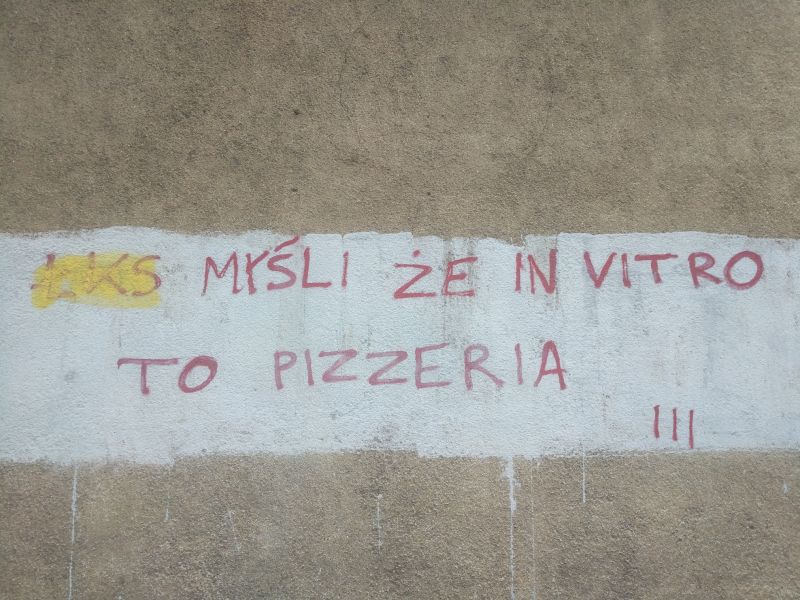 ŁKS MYŚLI ŻE IN VITRO
TO PIZZERIA
!!!